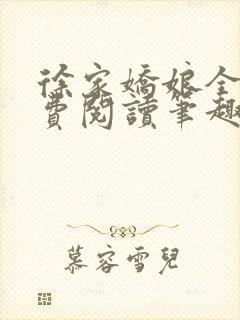 徐家嬌娘全
費閱讀筆趣
慕容雪兒